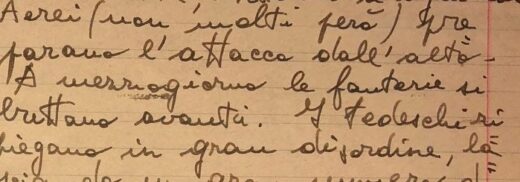 Aerei (non molti però) pre
parano l'attacco dall'alto -
A mezzogiorno le fanterie si
buttano avanti. I Tedeschi ri
piegano in gran disordine, la